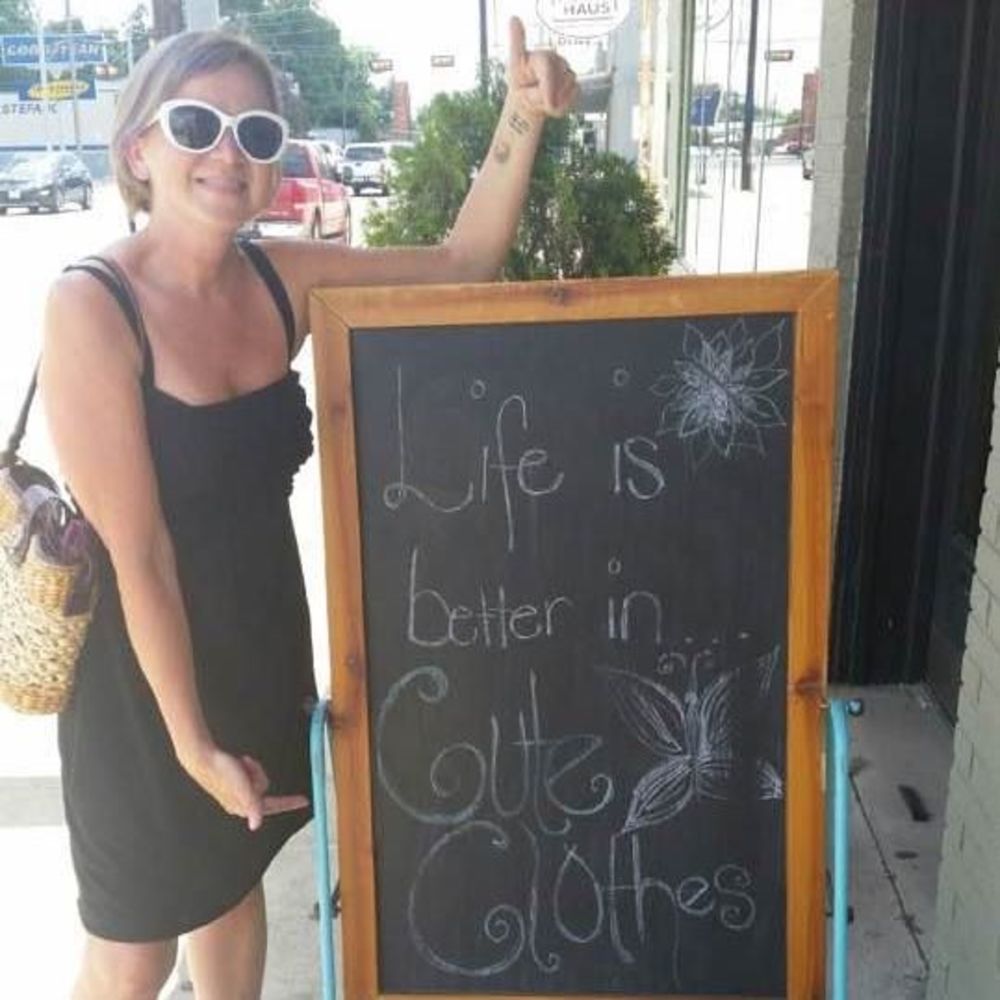 GOODYEAR
STEFA
HAUS
Life is
better in....
Cute
Clothes